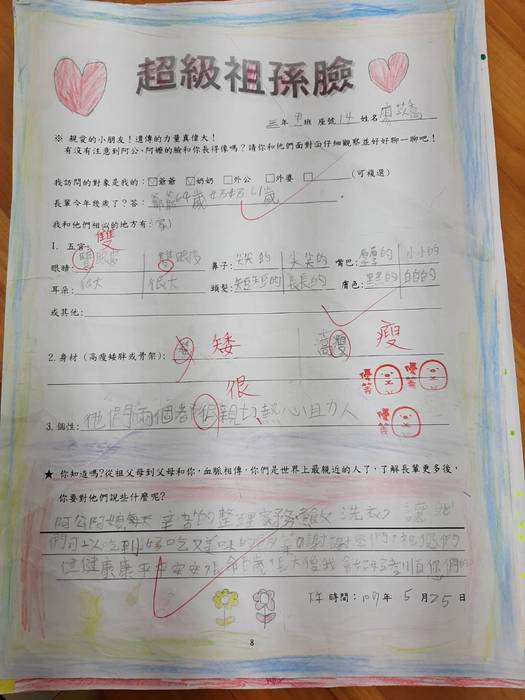 超級祖孫臉
三年 班 座號14 姓名
※ 親愛的小朋友！遺傳的力量真偉大！
有沒有注意到阿公、阿嬤的臉和你長得像嗎？請你和他們面對面仔細觀察並好好聊一聊吧！
我訪問的對象是我的：☑爺爺 ☑奶奶 □外公 □外婆 □ (可複選)
長輩今年幾歲了？答：爺爺64歲 奶奶61歲
我和他們相似的地方有：
1. 五官： 雙
眼睛： 眼皮 雙眼皮 鼻子：尖尖的 尖尖的 嘴巴：厚厚的 小小的
耳朵：很大 很大 頭髮：短短的 長長的 膚色：黑黑的 白白的
或其他：
2. 身材（高瘦矮胖或骨架）： 矮 高瘦 瘦
優等 優等
很
3. 個性：他們兩個都很親切熱心且力人
優等
★ 你知道嗎？從祖父母到父母和你，血脈相傳，你們是世界上最親近的人了，了解長輩更多後，
你要對他們說些什麼呢？
阿公阿嬤每天辛苦的整理家務 煮飯 洗衣 讓我
們可以吃到好吃又美味的 謝謝 們 祝您們
健健康康平平安安 歲 長大 我 會好好孝順你們
時間：109年 5 月 25 日
8